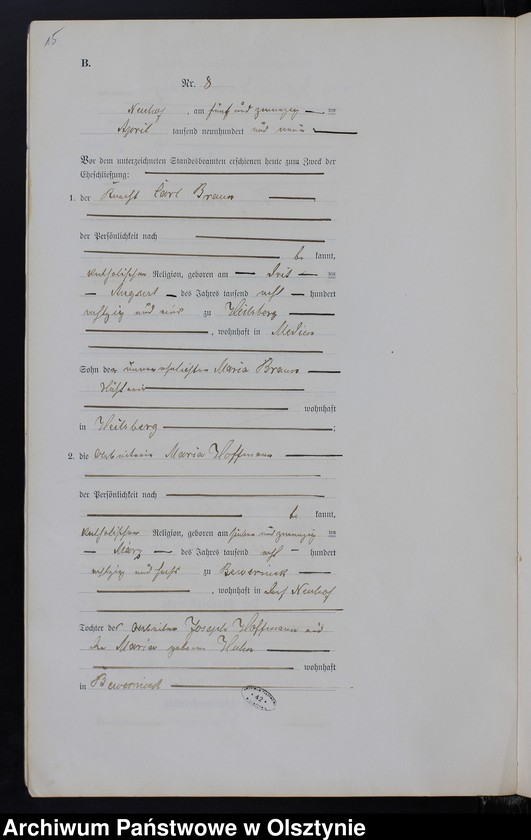 15
B.
Nr. 8
Neuhof, am fünf und zwanzig
April tausend neunhundert und neun
Vor dem unterzeichneten Standesbeamten erschienen heute zum Zweck der
Eheschließung:
1. der Knecht Carl Braun
der Persönlichkeit nach
be kannt,
katholischer Religion, geboren am
August des Jahres tausend acht hundert
achtzig und vier zu Heilsberg
, wohnhaft in
Sohn der unverehelichten Maria Braun
wohnhaft
in Heilsberg ;
2. die Arbeiterin Maria Hoffmann
der Persönlichkeit nach
be kannt,
katholischer Religion, geboren am sieben und zwanzig
März des Jahres tausend acht hundert
achtzig und sechs zu Bewernick
, wohnhaft in Dorf Neuhof
Tochter des Arbeiter Joseph Hoffmann und
der Maria geborene Hahn
wohnhaft
in Bewernick
42
Archiwum Państwowe w Olsztynie